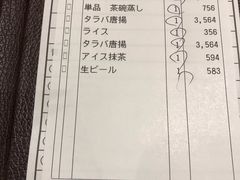 単品 茶碗蒸し 1 756
タラバ唐揚 1 3,564
ライス 1 356
タラバ唐揚 1 3,564
アイス抹茶 1 594
生ビール 1 583